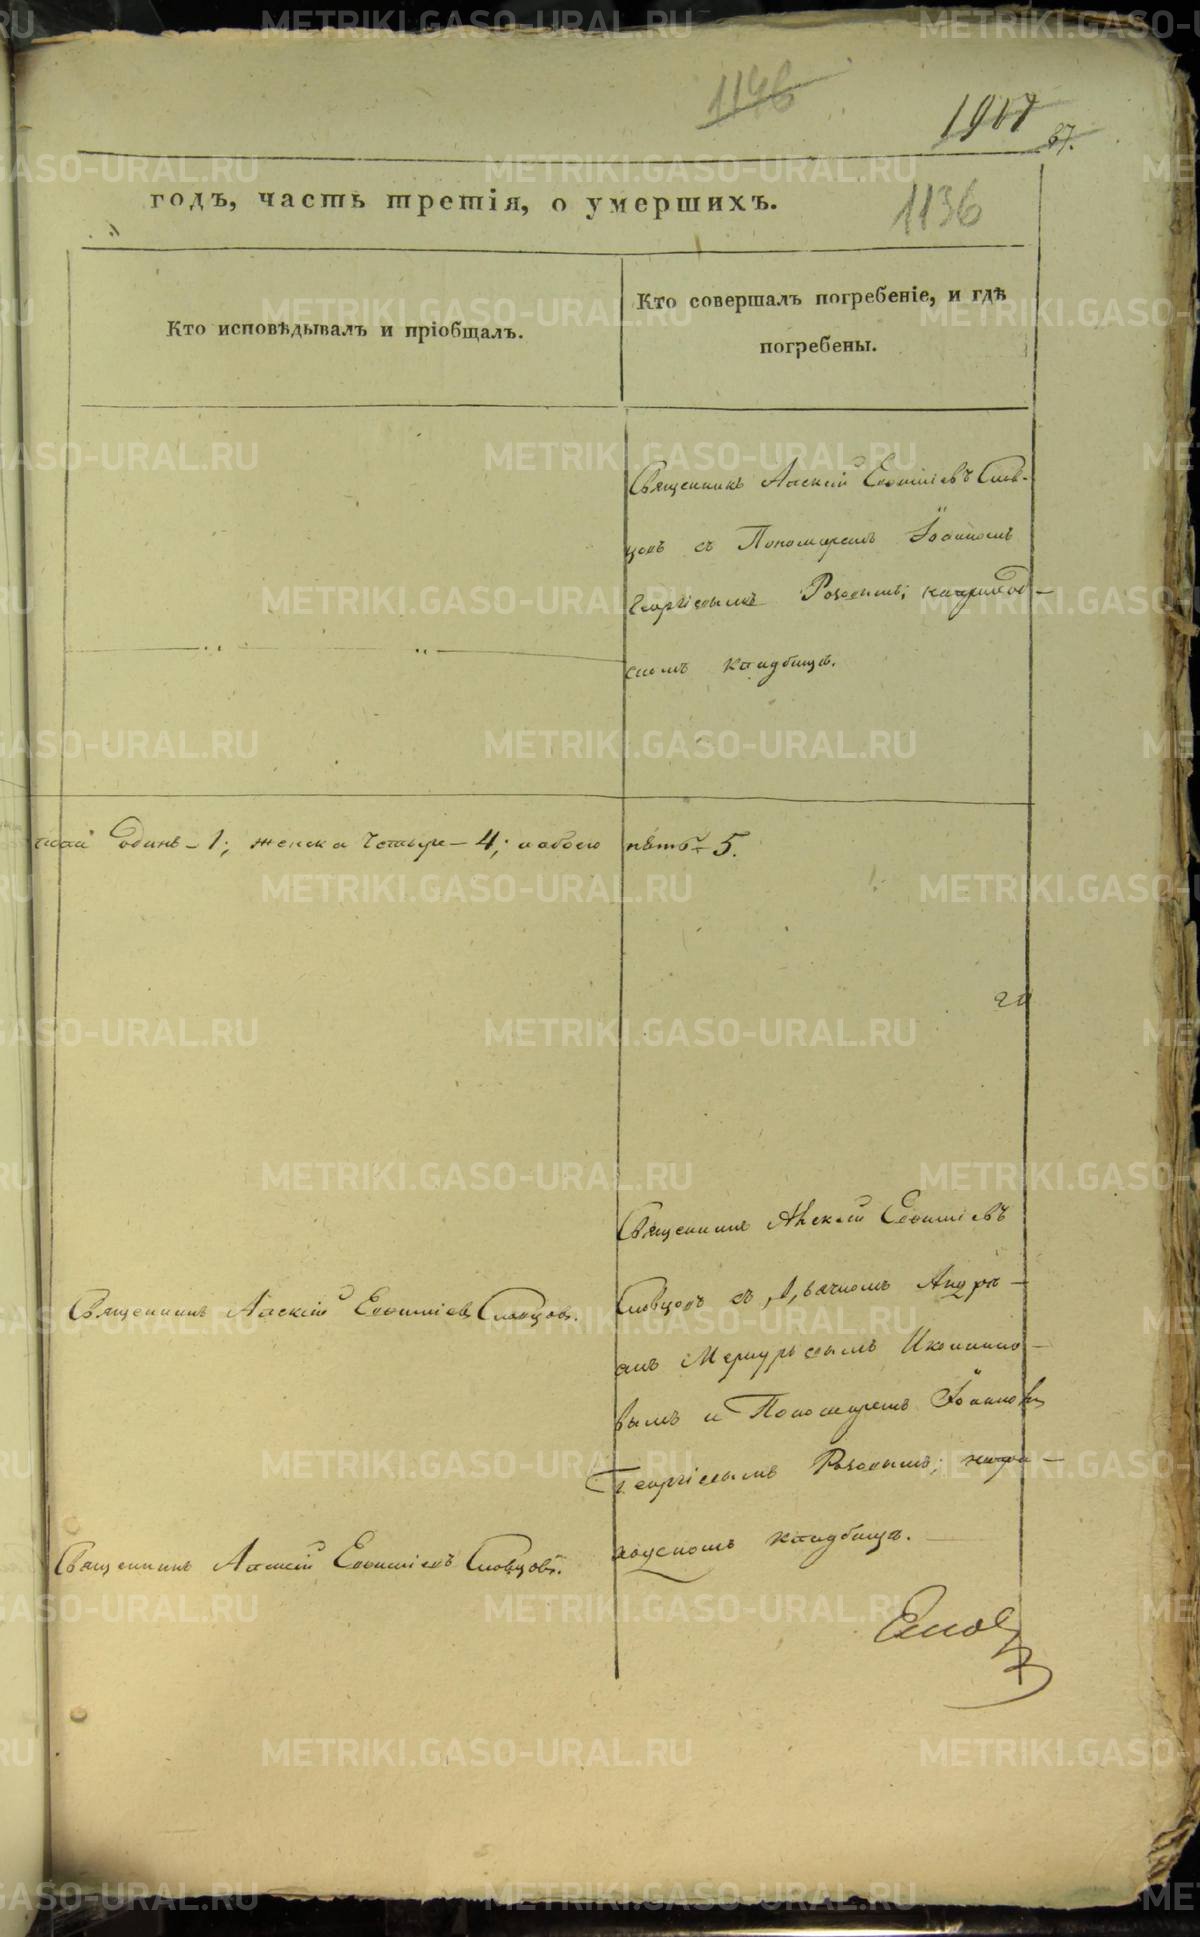 1146
1917
87.
годъ, часть третія, о умершихъ.
1136
Кто исповѣдывалъ и пріобщалъ.
Кто совершалъ погребеніе, и гдѣ
погребены.
Священникъ Алексій Евфиміевъ Слов-
цовъ съ Пономаремъ Іоанномъ
Георгіевымъ Розовымъ; на приход-
скомъ кладбищѣ.
Одинъ - 1; женска Четыре - 4; и обоего пять - 5.
20
Священникъ Алексій Евфиміевъ
Священникъ Алексій Евфиміевъ Словцовъ.
Словцовъ съ Дьячкомъ Андре-
емъ Меркурьевымъ Иконнико-
вымъ и Пономаремъ Іоанномъ
Георгіевымъ Розовымъ; на при-
ходскомъ кладбищѣ.
Священникъ Алексій Евфиміевъ Словцовъ.
METRIKI.GASO-URAL.RU